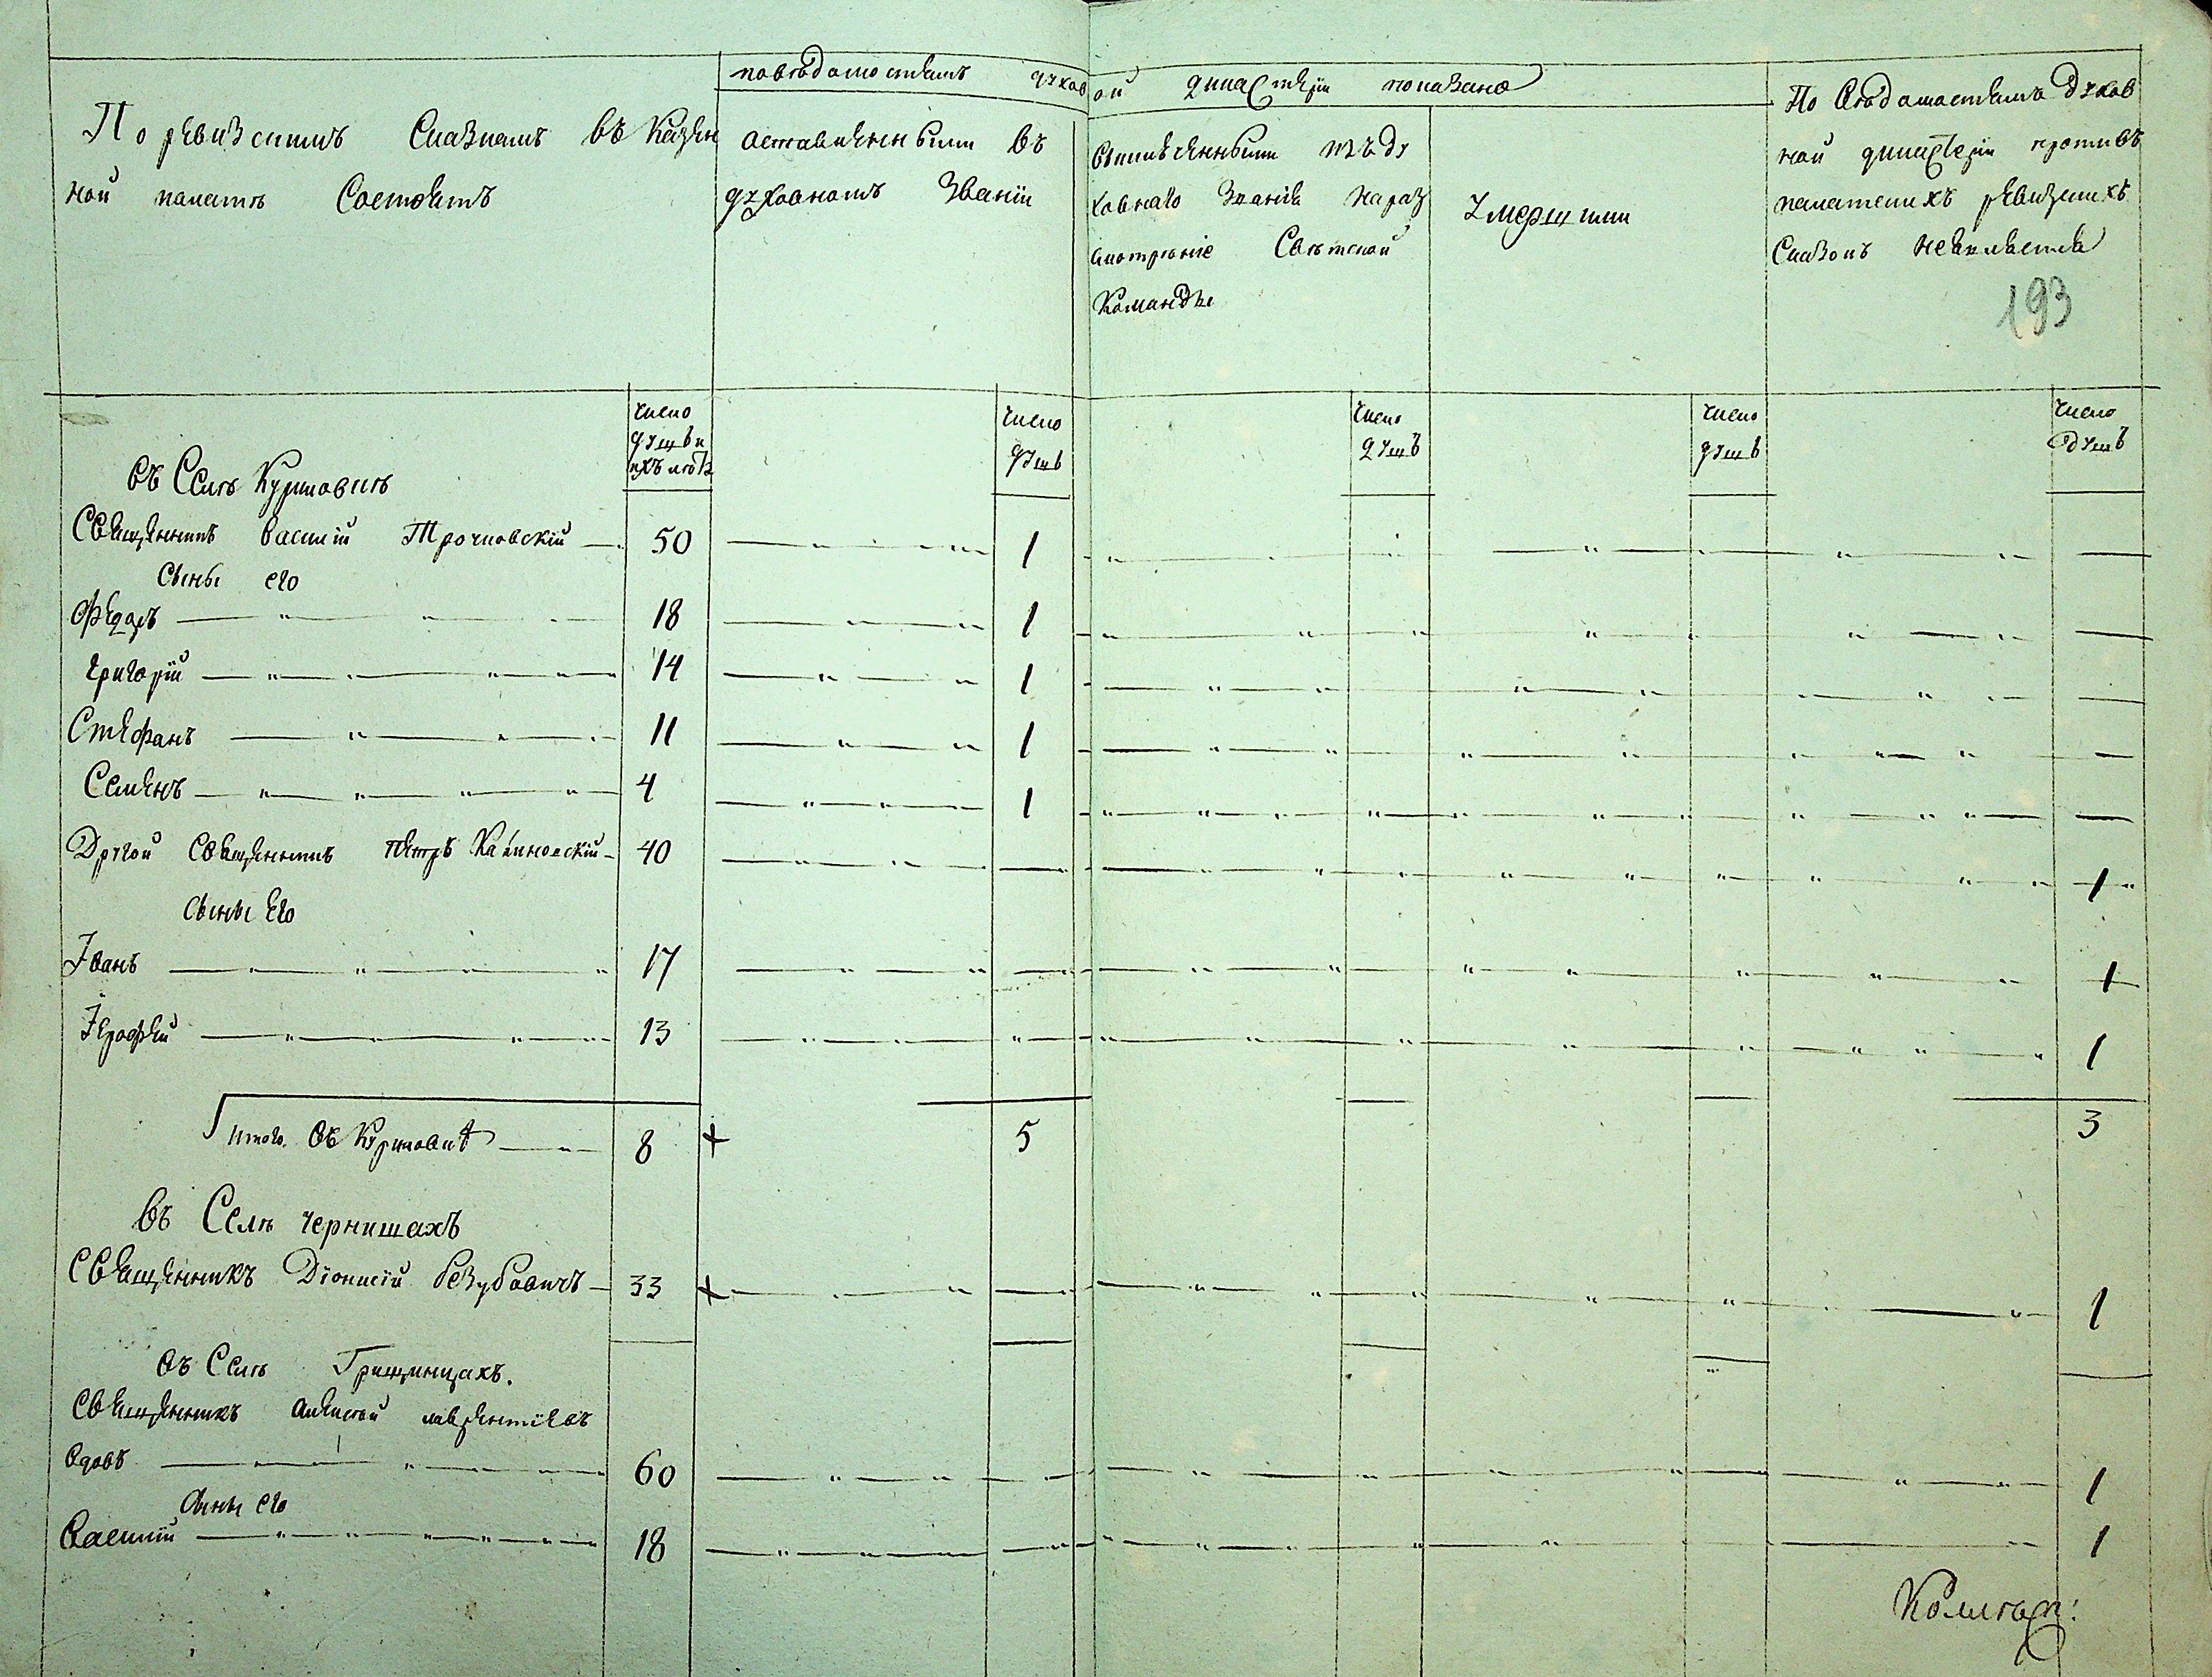 По ревизскимъ Сказкамъ въ казен
ной палатѣ Состоитъ
повѣдомостямъ духовной дикастеріи показано
оставленными въ
духовномъ званіи
выключенными изъ ду
ховнаго званія на раз
смотреніе Свѣтской
Команды
Умершими
По вѣдомостямъ духов
ной дикастеріи противъ
палатскихъ ревизскихъ
Сказокъ неявляется
193
число
душъ и
ихъ лѣтъ
число
душъ
число
душъ
число
душъ
число
душъ
въ Селѣ Куриловкѣ
Священникъ Василій Трочновскій 50 1
сыны его
Федоръ 18 1
Григорій 14 1
Стефанъ 11 1
Семенъ 4 1
Другой Священникъ Петръ Калиновскій 40 1
сыны его
Іванъ 17 1
Іерофей 13 1
Итого въ Куриловкѣ 8 + 5 3
въ Селѣ Чернишахъ
Священникъ Діонисій безубовичъ 33 + 1
въ Селѣ Грищинцахъ.
Священникъ алексѣй лаврентіевъ
вдовъ 60 1
сыны его
Василій 18 1